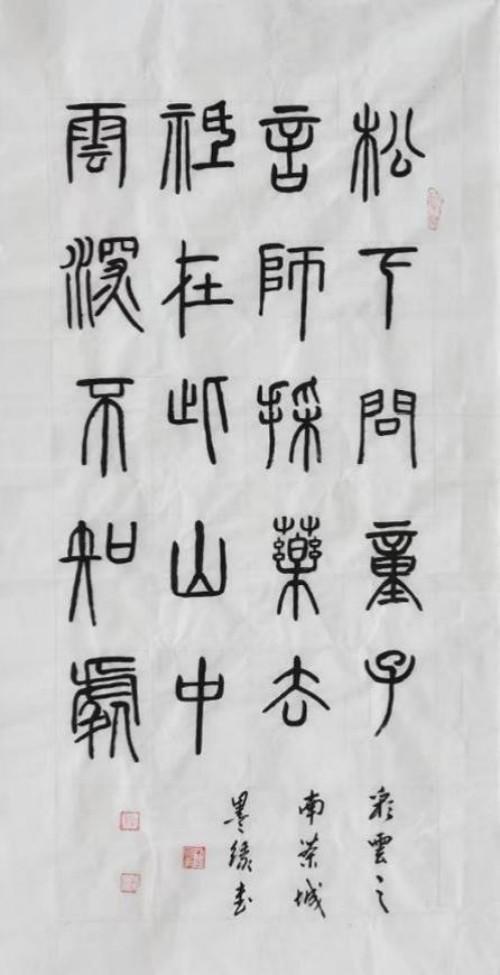 松下問童子
言師採藥去
祇在此山中
雲深不知處
彩雲之
南茶城
墨緣書